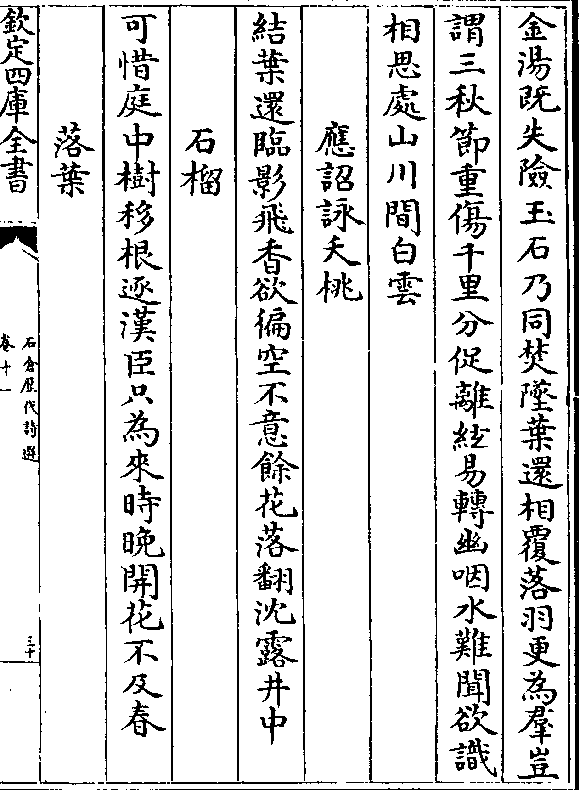 金湯既失險玉石乃同焚墜葉還相覆落羽更為羣豈
謂三秋節重傷千里分促離絃易轉幽咽水難聞欲識
相思處山川間白雲
應詔詠夭桃
結葉還臨影飛香欲徧空不意餘花落翻沈露井中
石榴
可惜庭中樹移根逐漢臣只為來時晚開花不及春
落葉
欽定四庫全書
石倉歷代詩選
卷十一
三十